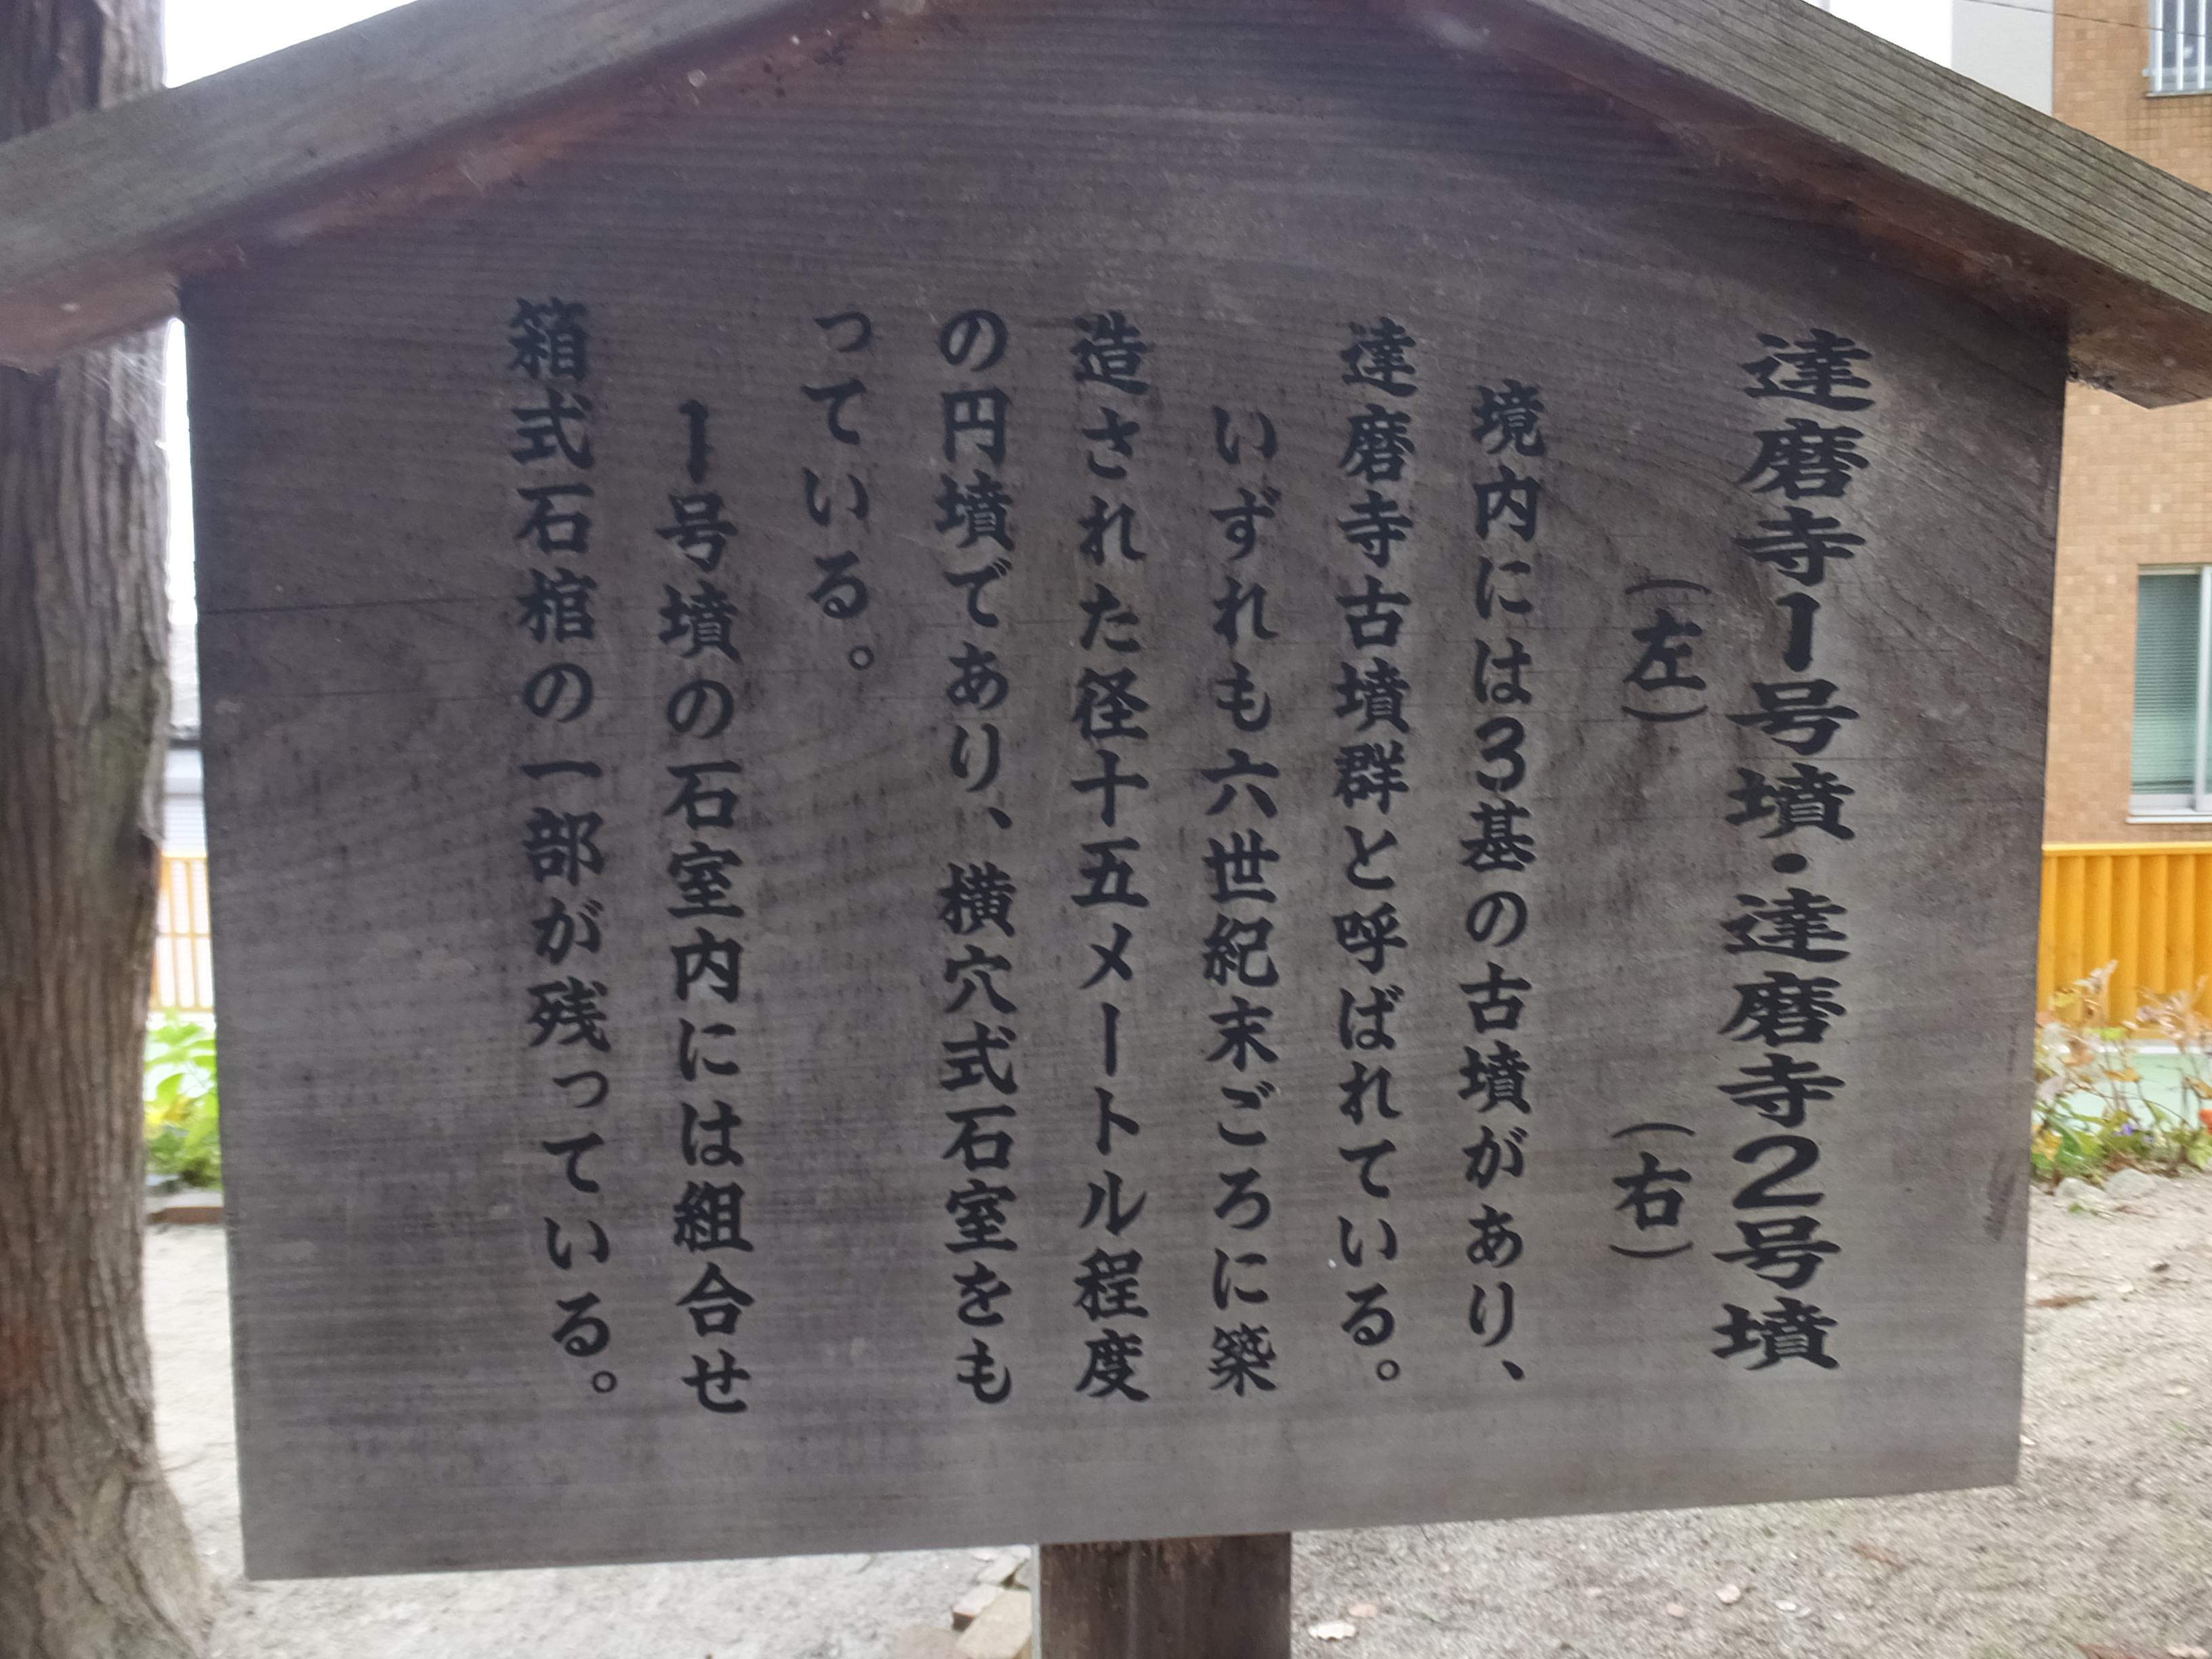 達磨寺1号墳・達磨寺2号墳
（左）（右）
境内には3基の古墳があり、
達磨寺古墳群と呼ばれている。
いずれも六世紀末ごろに築
造された径十五メートル程度
の円墳であり、横穴式石室をも
っている。
1号墳の石室内には組合せ
箱式石棺の一部が残っている。